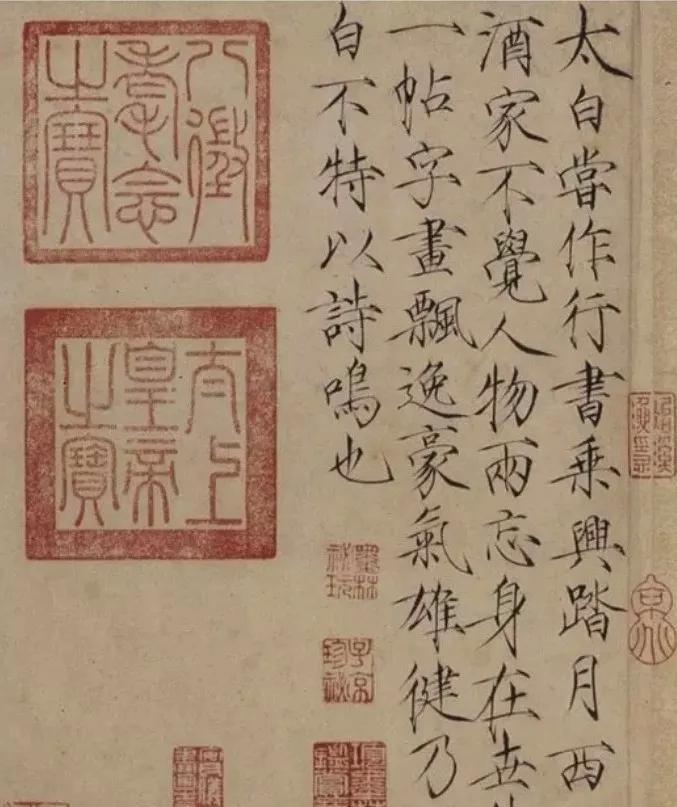 太白嘗作行書乘興踏月西
酒家不覺人物兩忘身在世
一帖字畫飄逸豪氣雄健乃
白不特以詩鳴也
墨林祕玩
子京珍祕
八徵耄念之寶
太上皇帝之寶